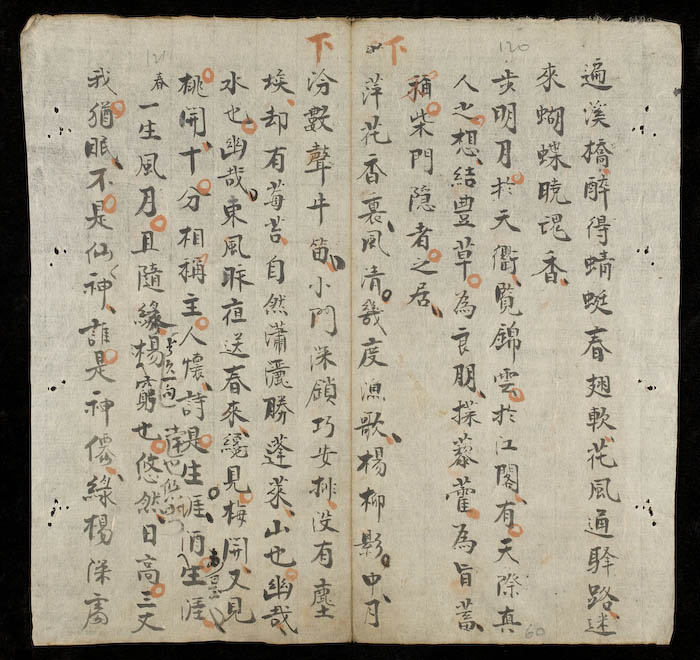 120
遍溪橋醉得蜻蜓春翅軟花風通驛路迷
來蝴蝶曉魂香
步明月於天衢覧錦雲於江閣有天際真
人之想結豊草為良朋採藜藿為旨蓄
稱柴門隐者之居
下
萍花香裏風清幾度漁歌楊柳影中月
60
下
汾數聲牛笛小門深鎖巧安排没有塵
埃却有莓苔自然瀟灑勝蓬萊山也幽哉
水也幽哉東風昨夜送春來纔見梅開又見
桃開十分相稱主人懷詩是生涯酒生涯
121
春
一生風月且隨緣楊窮也悠然日高三丈
我猶眠不是仙神誰是神僊緣楊深處